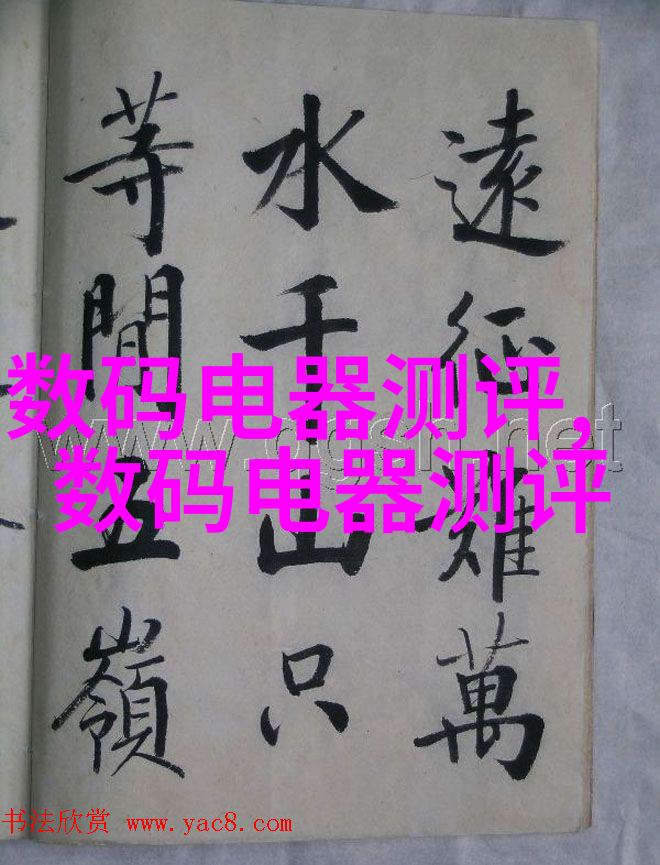 遠征難萬
水千山只
等閒五嶺
数码电器测评,
数码电器测评
书法欣赏 www.yac8.com